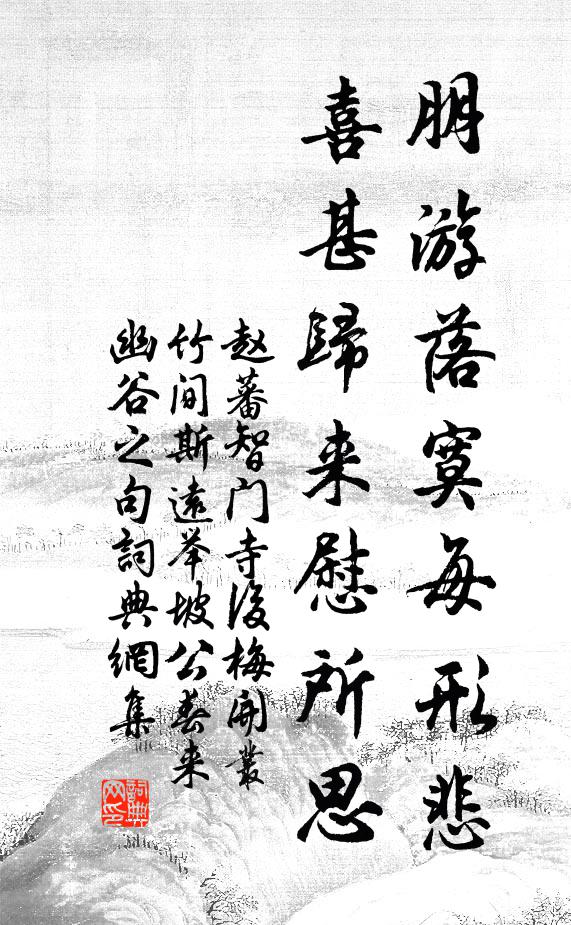 朋游落寞每形悲
喜甚歸来慰所思
赵蕃智门寺後梅開叢
竹间斯遠举坡公春来
幽谷之句詞典網集
詞典网印